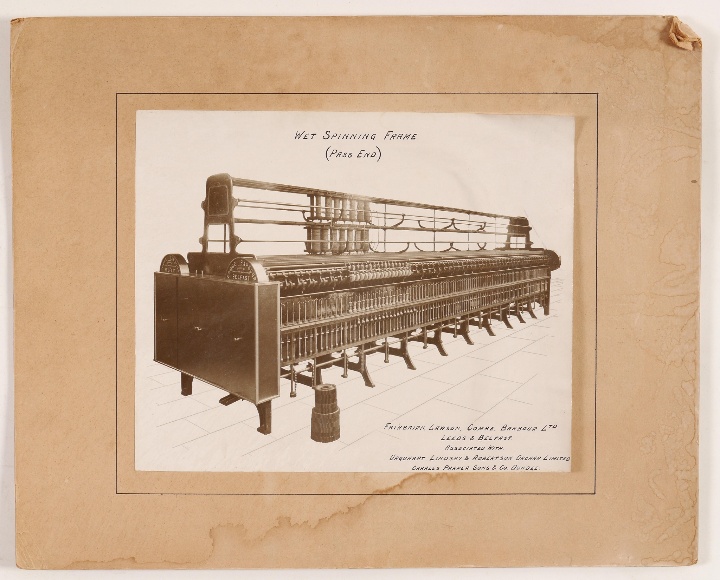 WET SPINNING FRAME
(PASS END)
BELFAST
FAIRBAIRN, LAWSON, COMBE, BARBOUR LTD
LEEDS & BELFAST
ASSOCIATED WITH
URQUHART LINDSAY & ROBERTSON ORCHAR LIMITED
CHARLES PARKER SONS & CO. DUNDEE.